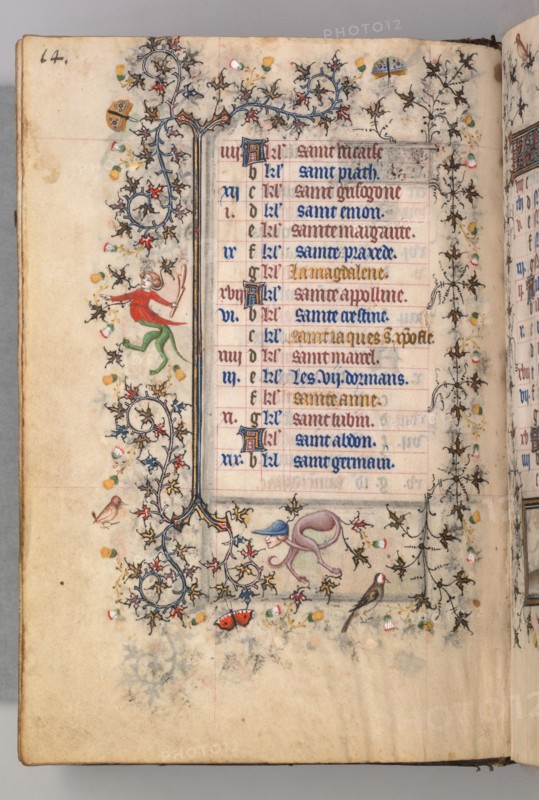 14.
iiij A kl' saint nicaise
b kl' saint piath.
xij c kl' saint grisogone
i. d kl' saint emon.
e kl' sainte margarite.
ix f kl' sainte praxede.
g kl' La magdaleine.
xvij A kl' sainte appolline.
vi. b kl' sainte cristine.
c kl' saint iaques
xiiij d kl' saint marcel.
iij. e kl' Les .vij. dormans.
f kl' sainte anne.
xi. g kl' saint
A kl' saint abdon.
xix. b kl saint germain.
PHOTO12
PHOTO12
PHOTO12